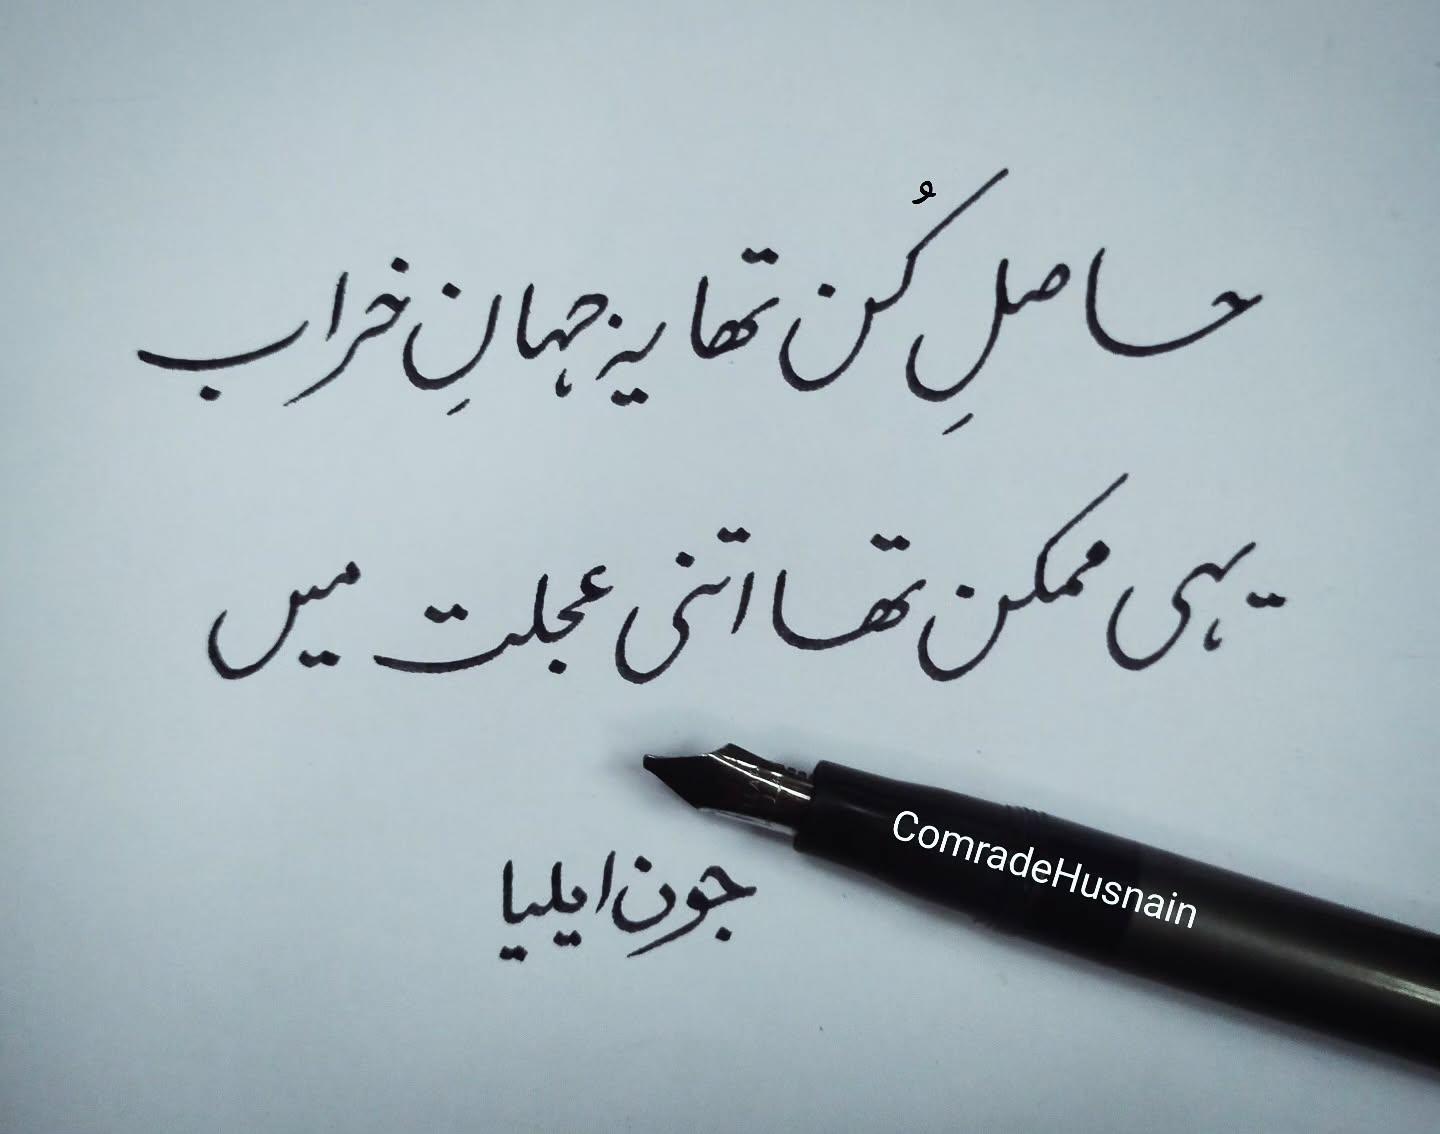 حاصلِ کُن تھا یہ جہانِ خراب
یہی ممکن تھا اتنی عجلت میں
جون ایلیا
ComradeHusnain